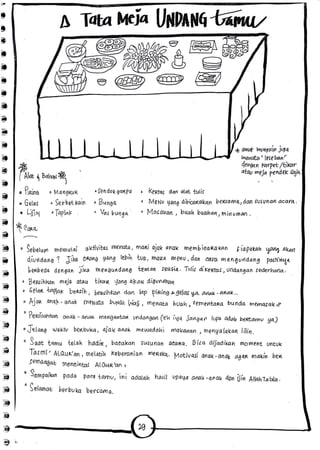 Δ Tata Meja UNDANG tamu
* anak mungkin juga
menata "lesehan"
dengan karpet/tikar
atau meja pendek saja.
Alat & Bahan
• Piring • Mangkuk • Sendok garpu • Kertas dan alat tulis
• Gelas • Serbet kain • Bunga • Menu yang dibicarakan bersama, dan susunan acara.
• Lilin • Taplak • Vas bunga • Masakan, buah buahan, minuman.
Cara
* Sebelum memulai aktivitas menata, mari ajak anak membicarakan siapakah yang akan
diundang? Jika orang yang lebih tua, maka menu, dan cara mengundang pastinya
berbeda dengan jika mengundang teman sebaya. Tulis di kertas, undangan sederhana.
* Bersihkan meja atau tikar yang akan digunakan
* Gelar taplak bersih, bersihkan dan lap piring & gelas ya anak-anak...
* Ajak anak-anak menata bunga (vas), menata buah, sementara bunda memasak
* anak-anak mengantar undangan (eh iya jangan lupa adab bertamu ya)
* Jelang waktu berbuka, ajak anak mewadahi makanan, menyalakan lilin.
* Saat tamu telah hadir, bacakan susunan acara. Bisa dijadikan moment untuk
Tasmi' ALQUR'an, melatih keberanian mereka. Motivasi anak-anak agar makin ber
semangat mencintai ALQUR'an
* Sampaikan pada para tamu, ini adalah hasil upaya anak-anak dan Ijin Allah Ta'ala.
* Selamat berbuka bersama.
29